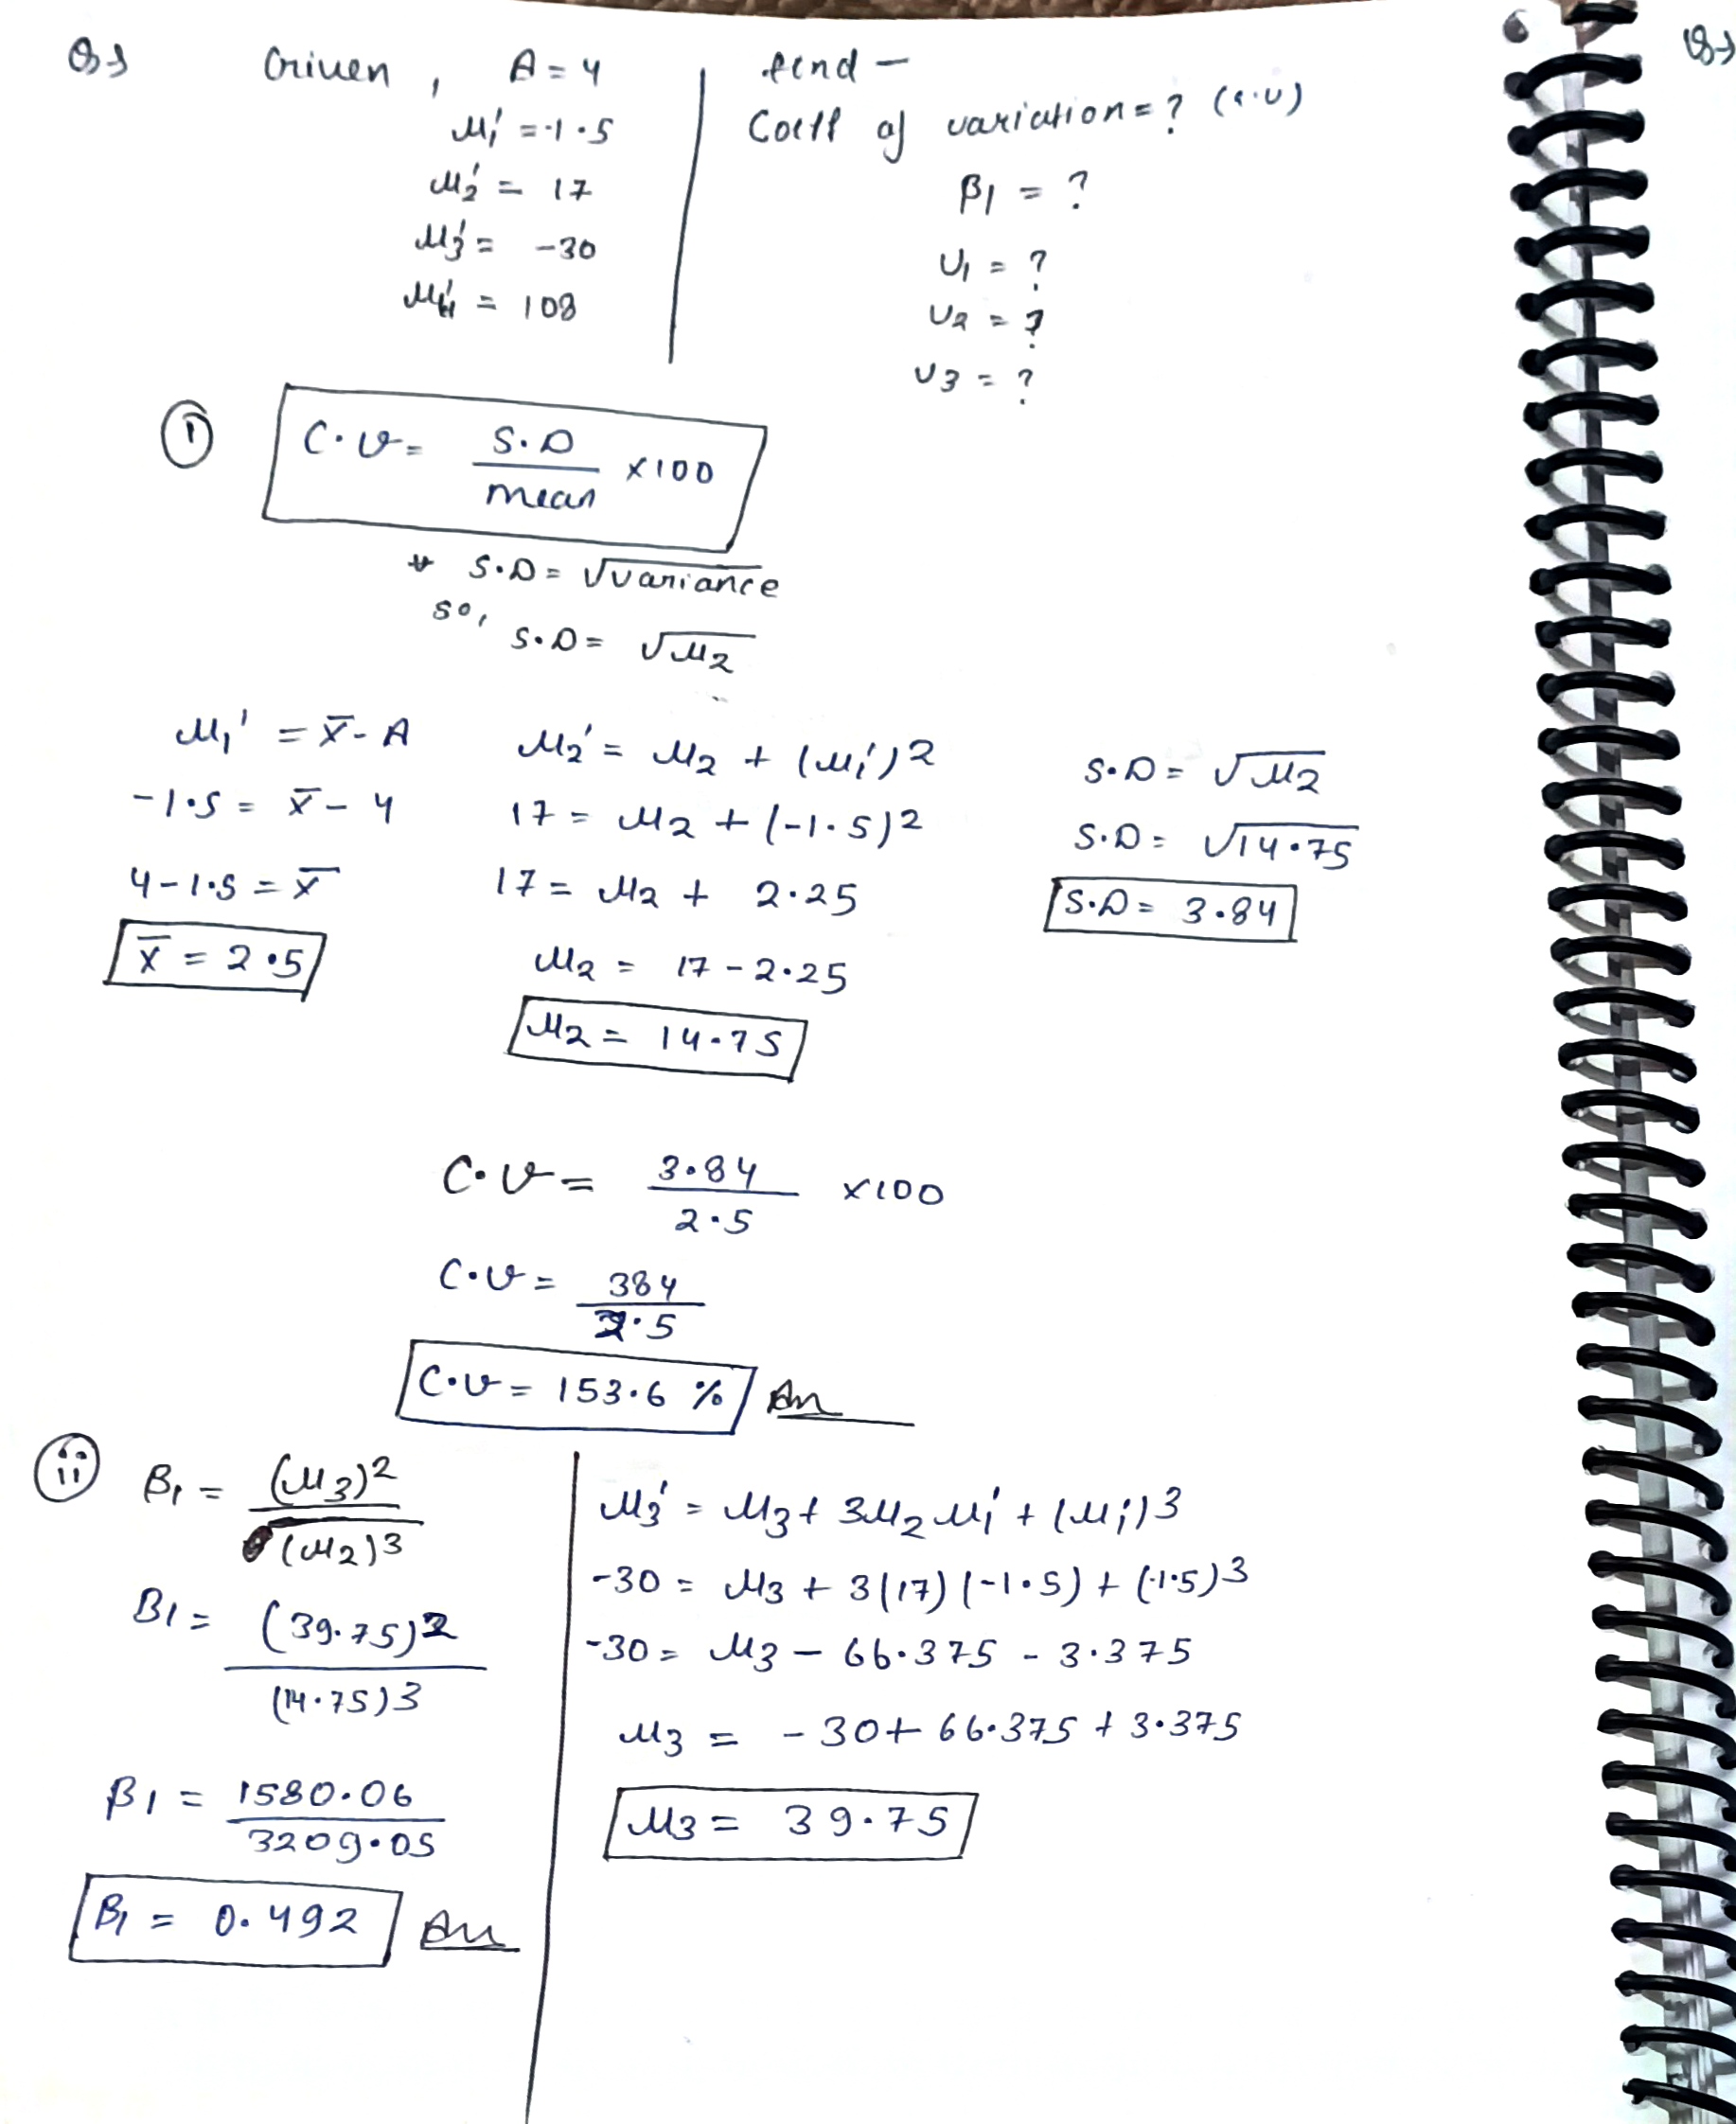 Q→ Given, A = 4
μ₁' = -1.5
μ₂' = 17
μ₃' = -30
μ₄' = 108
find -
Coeff of variation = ? (c.v)
β₁ = ?
υ₁ = ?
υ₂ = ?
υ₃ = ?
(i) C.V = S.D / mean ×100
* S.D = √variance
so, S.D = √μ₂
μ₁' = x̄ - A
-1.5 = x̄ - 4
4 - 1.5 = x̄
x̄ = 2.5
μ₂' = μ₂ + (μ₁')²
17 = μ₂ + (-1.5)²
17 = μ₂ + 2.25
μ₂ = 17 - 2.25
μ₂ = 14.75
S.D = √μ₂
S.D = √14.75
S.D = 3.84
C.V = 3.84 / 2.5 ×100
C.V = 384 / 2.5
C.V = 153.6 % An
(ii) β₁ = (μ₃)² / (μ₂)³
β₁ = (39.75)² / (14.75)³
β₁ = 1580.06 / 3209.05
β₁ = 0.492 An
μ₃' = μ₃ + 3μ₂ μ₁' + (μ₁')³
-30 = μ₃ + 3(17)(-1.5) + (-1.5)³
-30 = μ₃ - 66.375 - 3.375
μ₃ = -30 + 66.375 + 3.375
μ₃ = 39.75
Q→